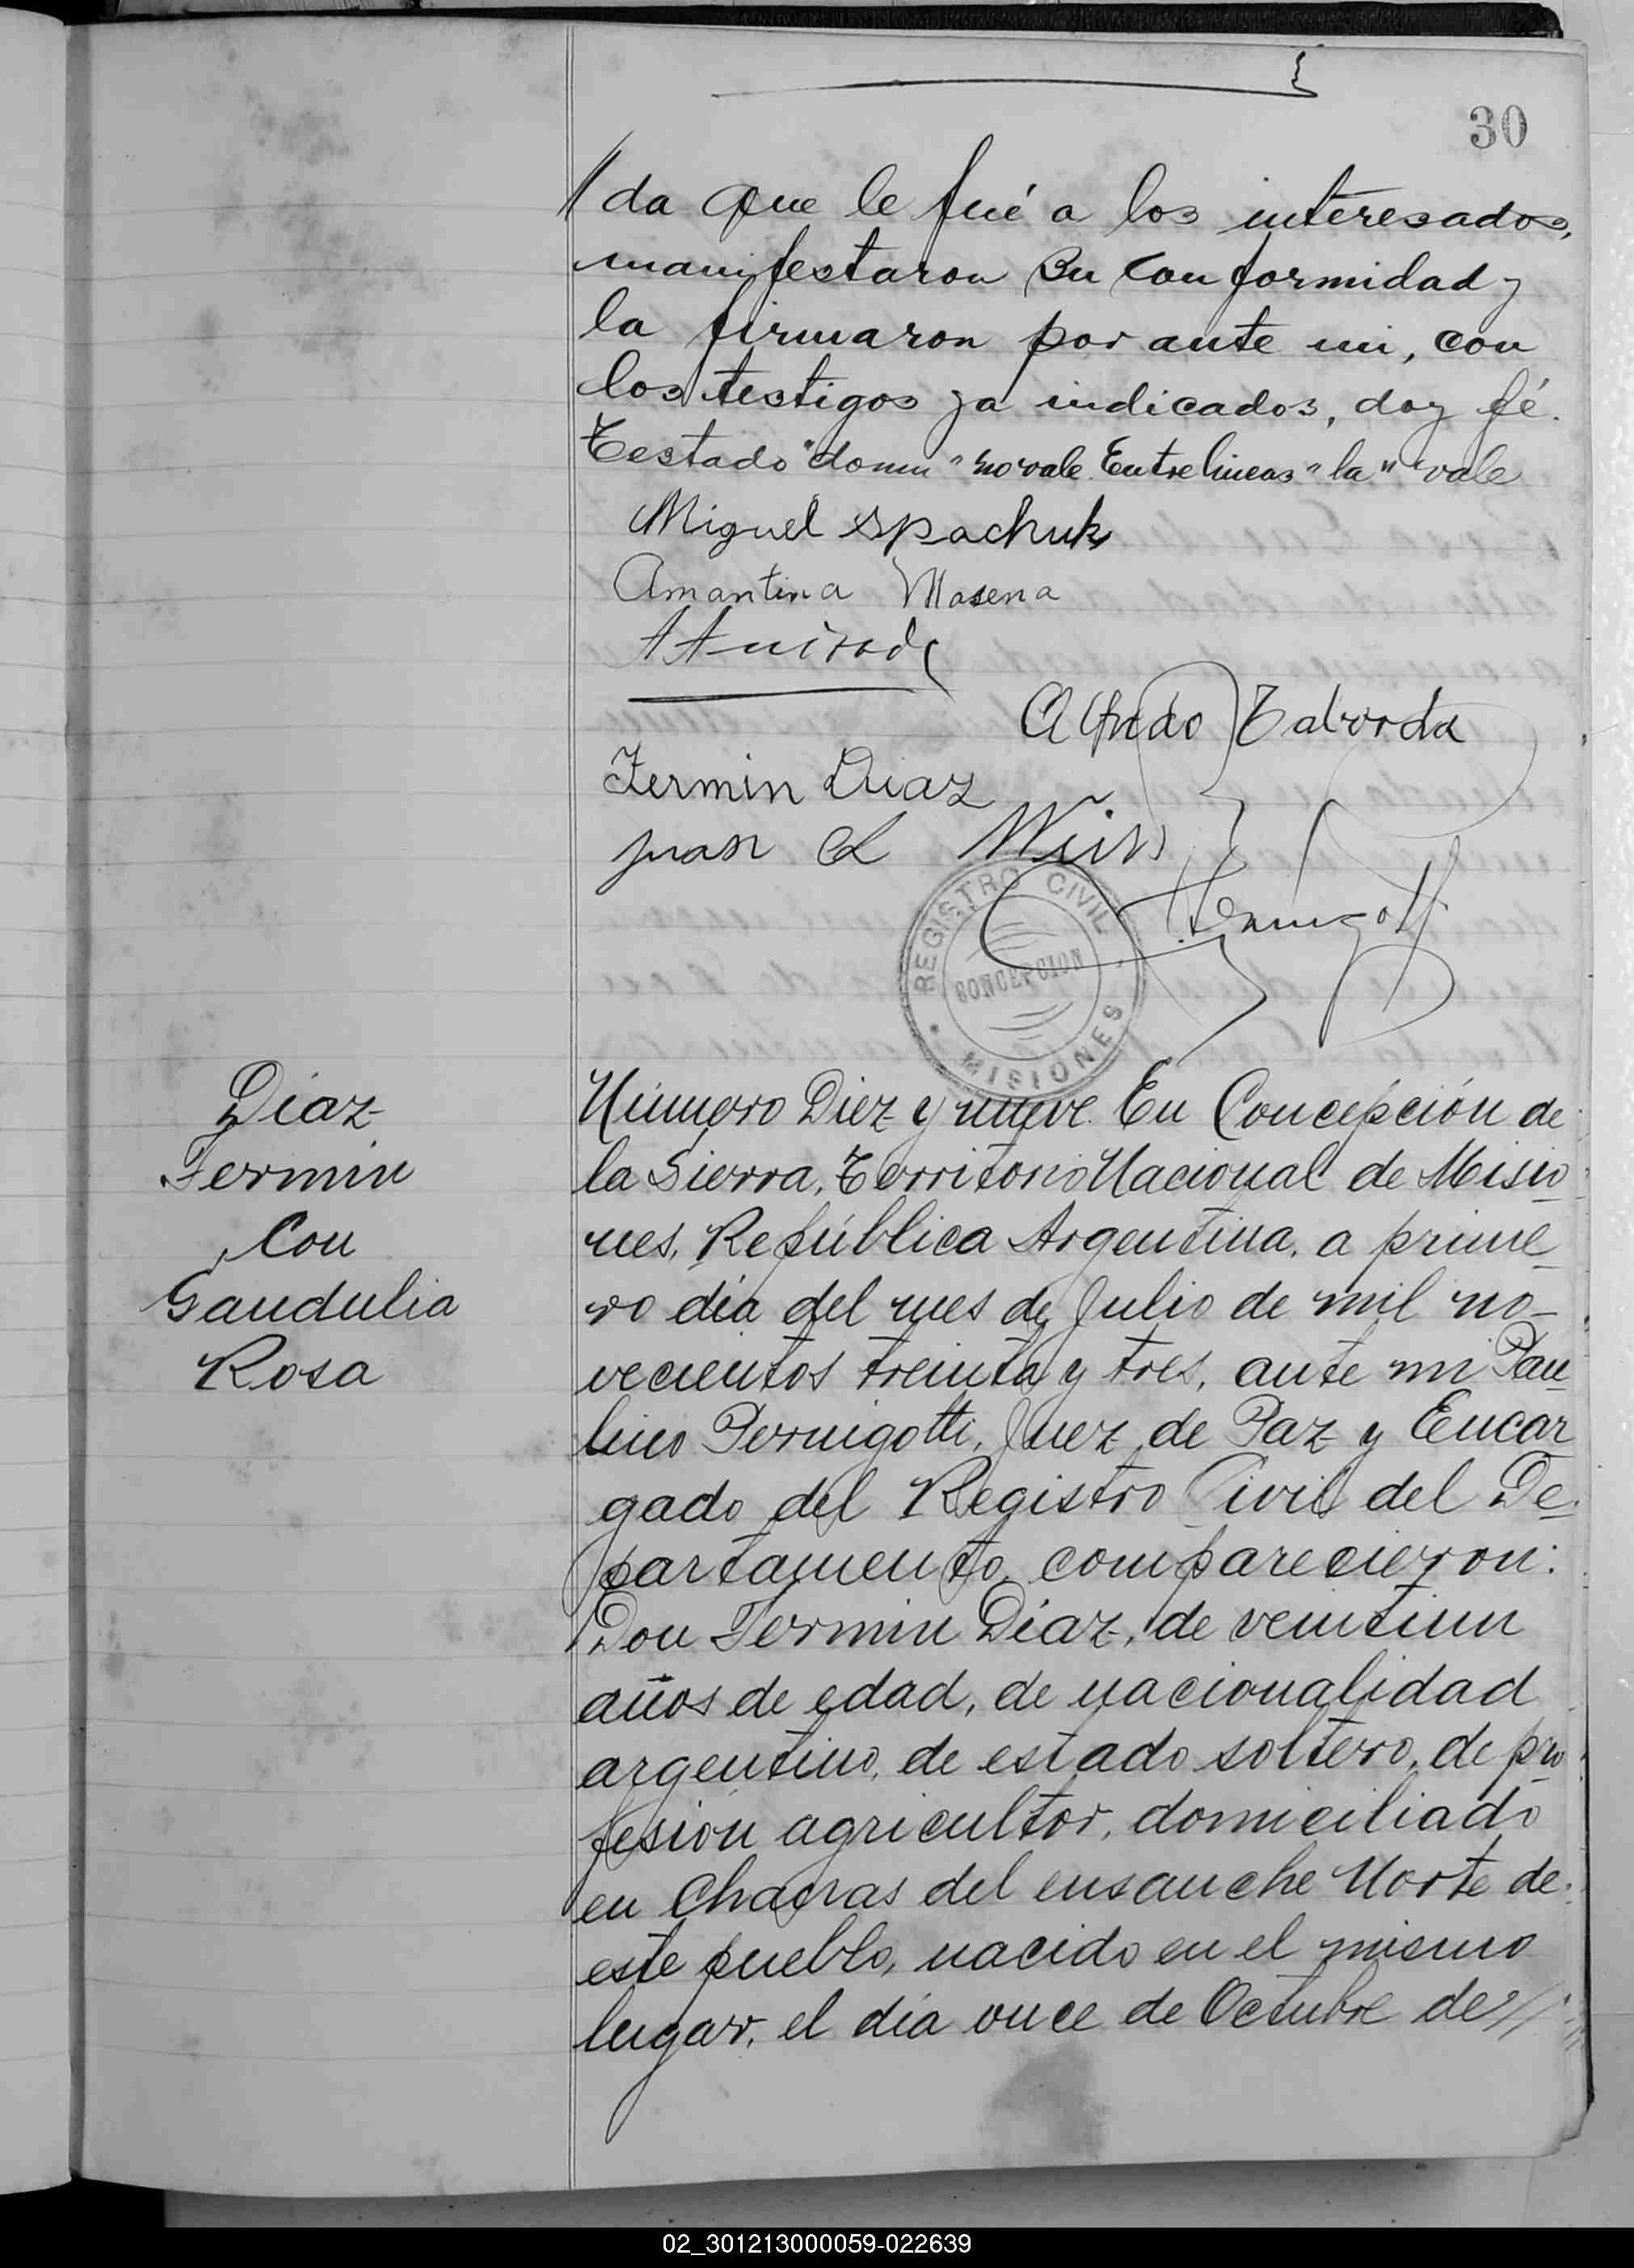 30
// da que le fué a los interesados,
manifestaron su conformidad y
la firmaron por ante mi, con
los testigos ya indicados, doy fé.
Testado "domu" no vale. Entre lineas "la" vale
Miguel Spachuk
Amantina Masena
Alfredo Taborda
Fermin Diaz
Juan
REGISTRO CIVIL
CONCEPCION
MISIONES
Díaz
Fermin
Con
Gaudulia
Rosa
Número Diez y nueve. En Concepción de
la Sierra, Territorio Nacional de Misio
nes, República Argentina, a prime
ro día del mes de Julio de mil no-
vecientos treinta y tres, ante mi Pau
lino Pernigotti, Juez de Paz y Encar
gado del Registro Civil del De
partamento, comparecieron:
Don Fermin Díaz, de veintiun
años de edad, de nacionalidad
argentino, de estado soltero, de pro
fesión agricultor, domiciliado
en Chacras del ensanche Norte de
este pueblo, nacido en el mismo
lugar, el día once de Octubre de //
02_301213000059-022639